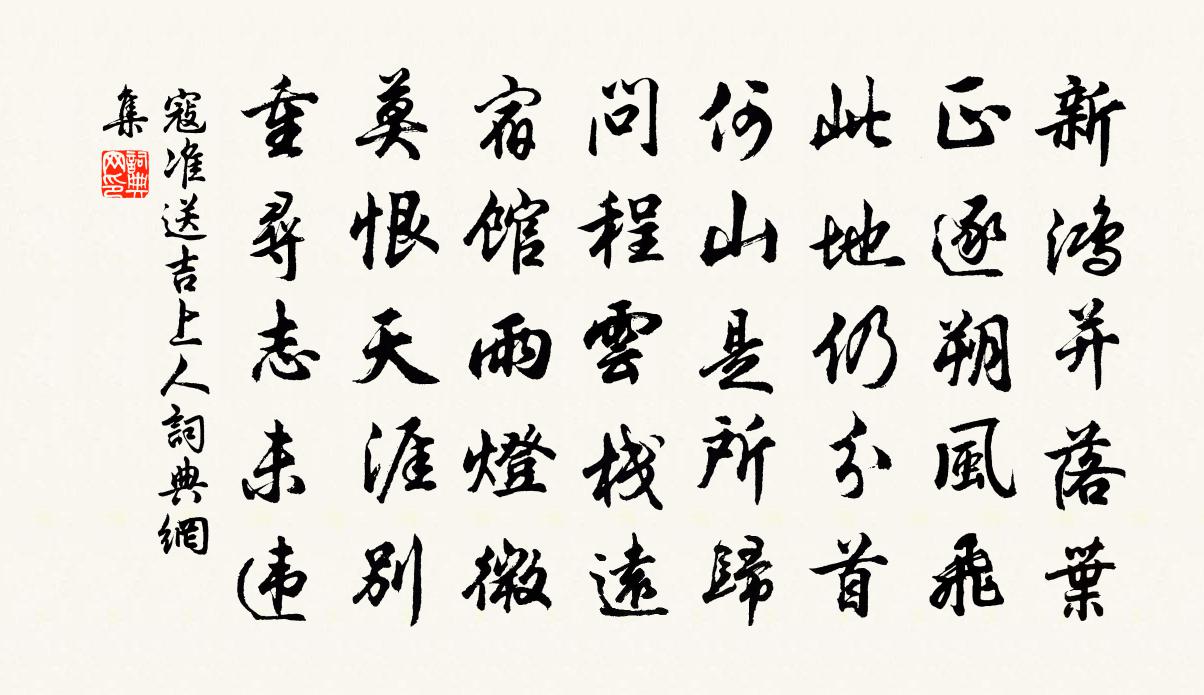 新鴻并落葉
正逐朔風飛
此地仍分首
何山是所歸
問程雲棧遠
宿館雨燈微
莫恨天涯別
重尋志未违
寇准送吉上人詞典網
集
詞典
网印